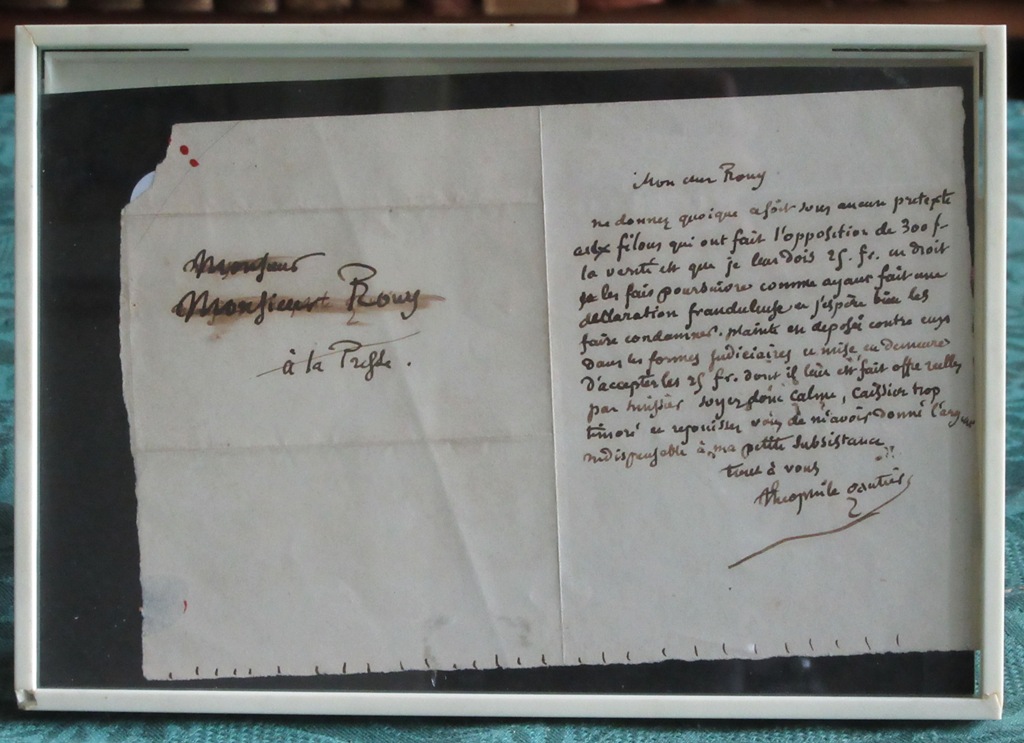 Monsieur
Monsieur Rouy
à la Presse.
Mon cher Rouy
ne donnez quoique ce soit sous aucun pretexte
aux filous qui ont fait l'opposition de 300 f.
la verité est que je leur dois 25. fr. en droit
je les fais poursuivre comme ayant fait une
declaration frauduleuse et j'espère bien les
faire condamner. plainte est deposée contre eux
dans les formes judiciaires et mise en demeure
d'accepter les 25 fr. dont il leur est fait offre reelles
par huissier soyez donc calme, caissier trop
timoré et rejouissez vous de m'avoir donné l'argent
indispensable à ma petite subsistance
tout à vous
Theophile Gautier